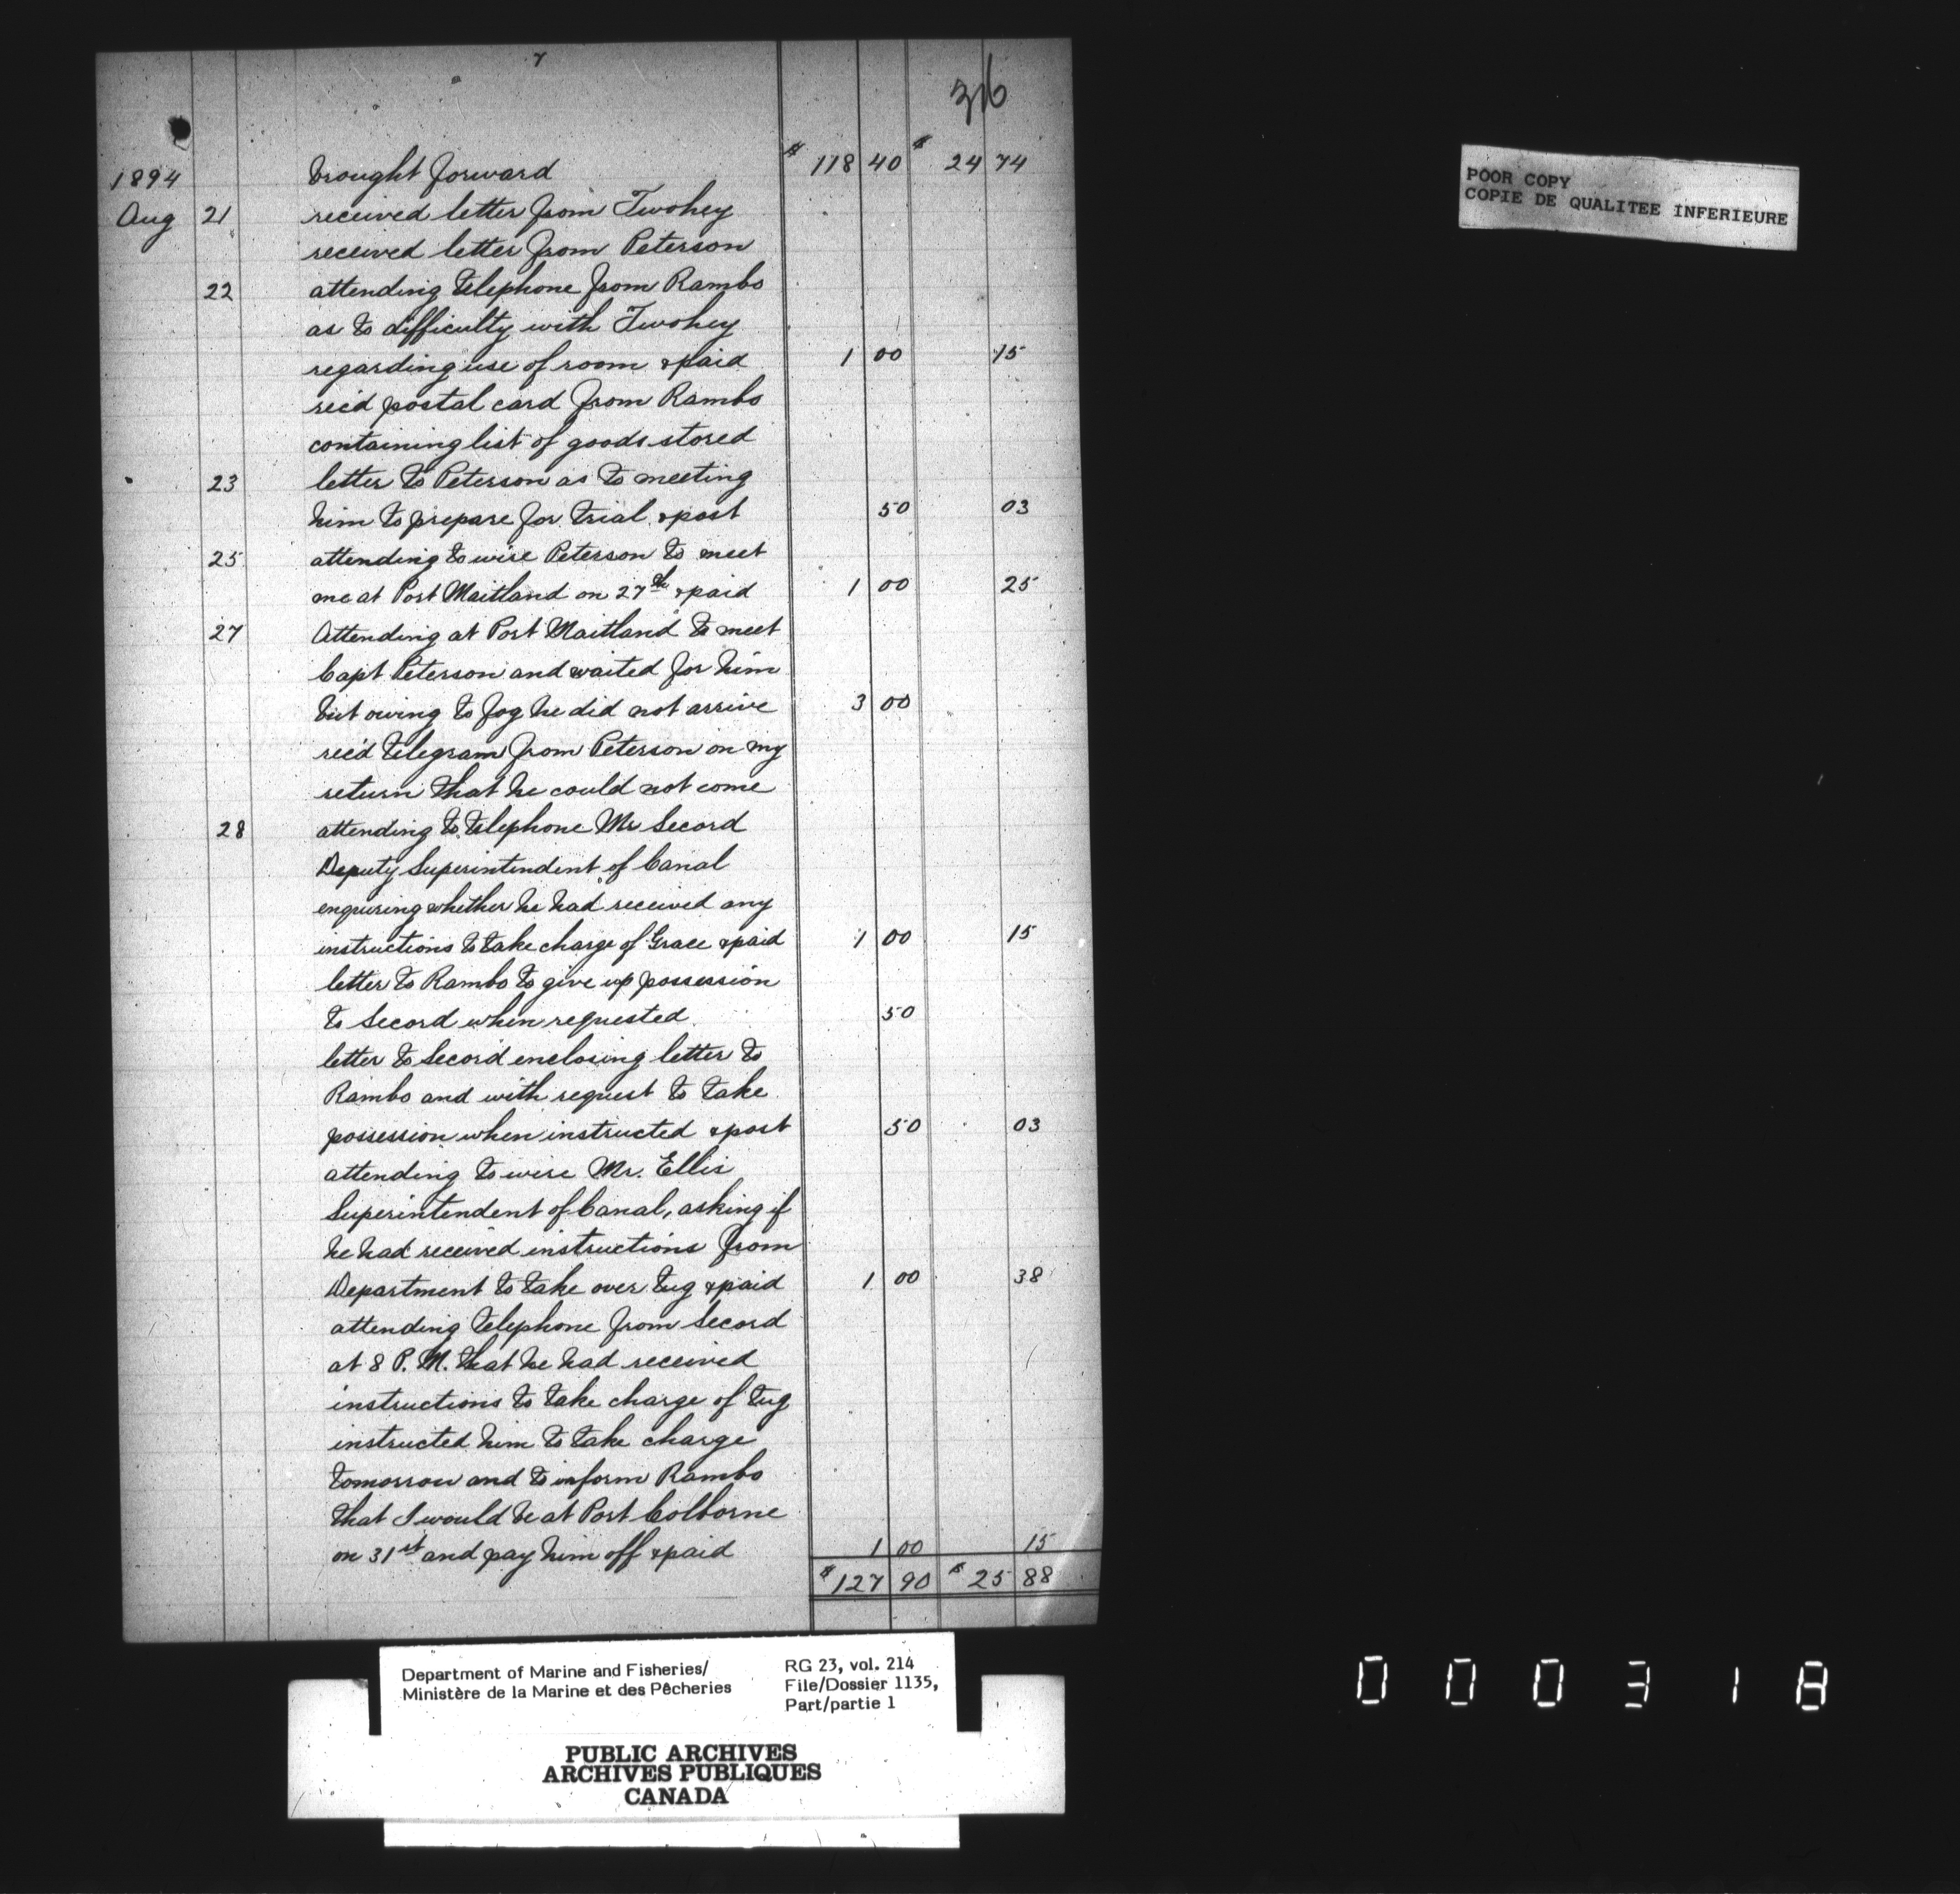 7
316
1894 brought forward $ 118 40 $ 24 74
Aug 21 received letter from Twohey
received letter from Peterson
22 attending telephone from Rambo
as to difficulty with Twohey
regarding use of room & paid 1 00 15
rec'd postal card from Rambo
containing list of goods stored
23 letter to Peterson as to meeting
him to prepare for trial & post 50 03
25 attending to wire Peterson to meet
me at Port Maitland on 27th & paid 1 00 25
27 Attending at Port Maitland to meet
Capt Peterson and waited for him
but owing to fog he did not arrive 3 00
rec'd telegram from Peterson on my
return that he could not come
28 attending to telephone Mr Secord
Deputy Superintendent of Canal
enquiring whether he had received any
instructions to take charge of Grace & paid 1 00 15
letter to Rambo to give up possession
to Secord when requested 50
letter to Secord enclosing letter to
Rambo and with request to take
possession when instructed & post 50 03
attending to wire Mr. Ellis
Superintendent of Canal, asking if
he had received instructions from
Department to take over tug & paid 1 00 38
attending telephone from Secord
at 8 P.M. that he had received
instructions to take charge of tug
instructed him to take charge
tomorrow and to inform Rambo
that I would be at Port Colborne
on 31st and pay him off & paid 1 00 15
$ 127 90 $ 25 88
POOR COPY
COPIE DE QUALITEE INFERIEURE
Department of Marine and Fisheries/
Ministère de la Marine et des Pêcheries
RG 23, vol. 214
File/Dossier 1135,
Part/partie 1
PUBLIC ARCHIVES
ARCHIVES PUBLIQUES
CANADA
000318